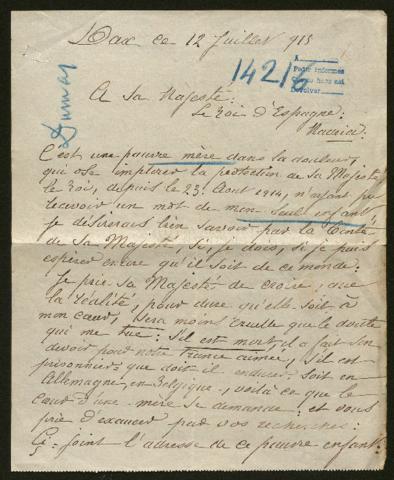 Dax ce 12 Juillet 915
A
Pedir informes
Como hara asi
Devolver
142/6
Dumas
A Sa Majesté:
Le Roi d'Espagne:
Madrid:
C'est une pauvre mère dans la douleur,
qui ose implorer la protection de sa Majesté
le Roi, depuis le 23: Aout 1914, n'ayant pu
recevoir un mot de mon seul enfant,
je désirerais bien savoir par la
de Sa Majesté, si, je dois, si je puis
espérer encore qu'il soit de ce monde:
Je prie Sa Majesté de croire, que
la réalité, pour dure qu'elle soit à
mon cœur, sera moins cruelle que le doute
qui me tue: S'il est mort, il a fait son
devoir pour notre France aimée, s'il est
prisonnier que doit il endurer. Soit en
Allemagne, en Belgique, voilà ce que le
cœur d'une mère se demande, et vous
prie d'exaucer par vos recherches:
Ci-joint l'adresse de ce pauvre enfant: